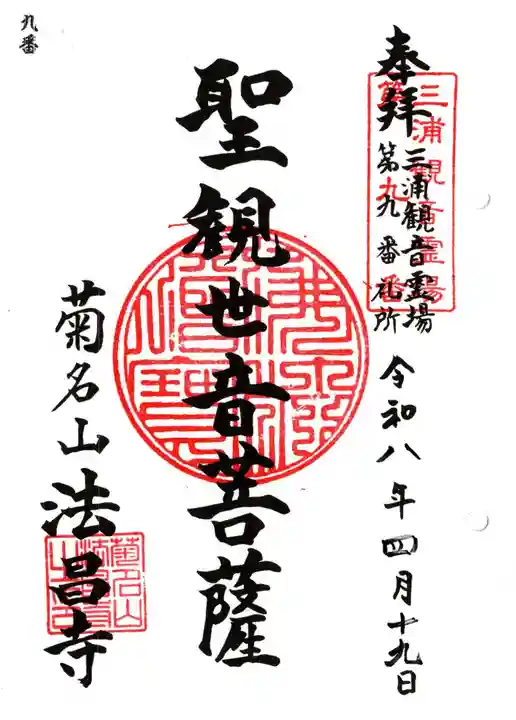 九番
奉拝
三浦観音霊場
第九番札所
令和八年四月十九日
三浦観音霊場
第九番
聖観世音菩薩
菊名山
法昌寺